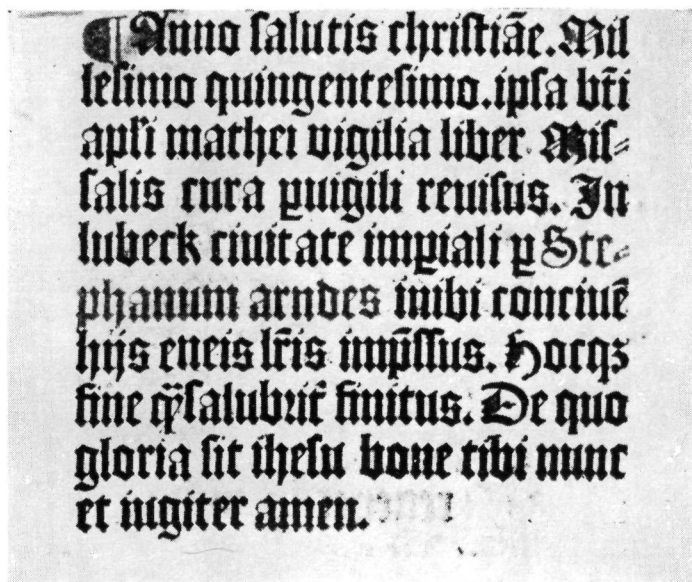 ¶ Anno salutis christiāe. Mil
lesimo quingentesimo. ipsa bt̄i
apl̄i mathei vigilia liber Mis-
salis cura ꝑuigili reuisus. In
lubeck ciuitate imꝑiali ꝑ Ste-
phanum arndes inibi conciuē
hijs eneis lr̄is imp̄ssus. Hocqꝫ
fine q̄ȝsalubrit̄ finitus. De quo
gloria sit ihesu bone tibi nunc
et iugiter amen.